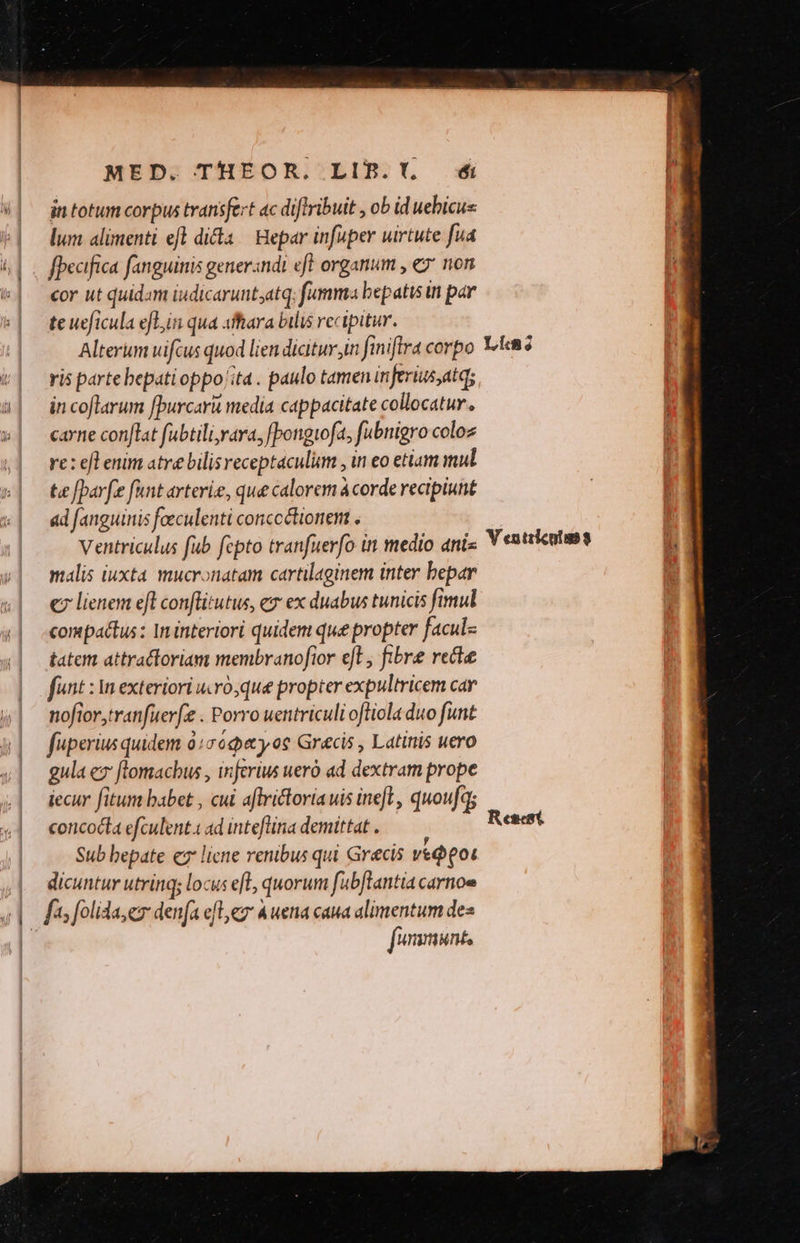 MED. THEOR. LIB. V. 61
in totum corpus transfert ac distribuit, ob id uehicu=
lum alimenti est dicta Hepar insuper uirtute sua
specifica sanguinis generandi est organum, & non
cor ut quidam iudicarunt, atq; summa hepatis in par
te uesicula est, in qua amara bilis recipitur.
Alterum uiscus quod lien dicitur, in sinistra corpo Lien;
ris parte hepati opposita. paulo tamen inferius, atq;
in costarum spurcarū media cappacitate collocatur.
carne constat subtili, rara, spongiosa, subnigro colo=
re: est enim atræ bilis receptaculum, in eo etiam mul
tæ sparsæ sunt arteriæ, quæ calorem à corde recipiunt
ad sanguinis fœculenti concoctionem.
Ventriculus sub septo transuerso in medio ani= Ventriculus
malis iuxta mucronatam cartilaginem inter hepar
& lienem est constitutus, & ex duabus tunicis simul
compactus: In interiori quidem quæ propter facul=
tatem attractoriam membranosior est, fibræ rectæ
sunt: In exteriori uerò, quæ propter expultricem car
nosior, transuersæ. Porro uentriculi ostiola duo sunt
superius quidem ὀισόφαγος Græcis, Latinis uero
gula & stomachus, inferius uerò ad dextram prope
iecur situm habet, cui astrictoria uis inest, quousq;
concocta esculenta ad intestina demittat. Renes;
Sub hepate & liene renibus qui Græcis νεφροι
dicuntur utrinq; locus est, quorum substantia carno=
sa, solida, & densa est, & à uena caua alimentum de=
summunt.